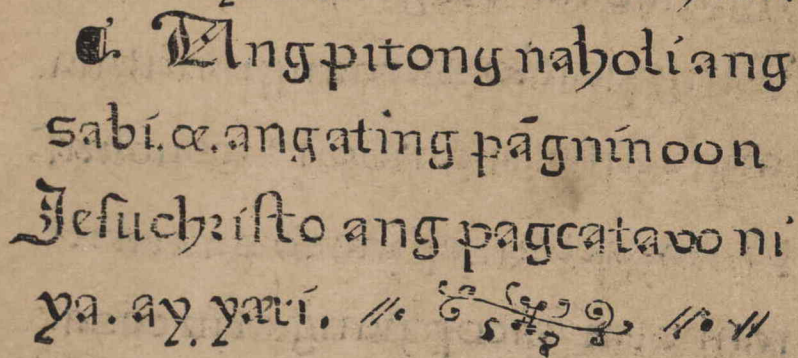 ¶. Ang pitong naholi ang
sabi. æ. ang ating pāgninoon
Jesuchristo ang pagcatavo ni
ya. ay, yari.